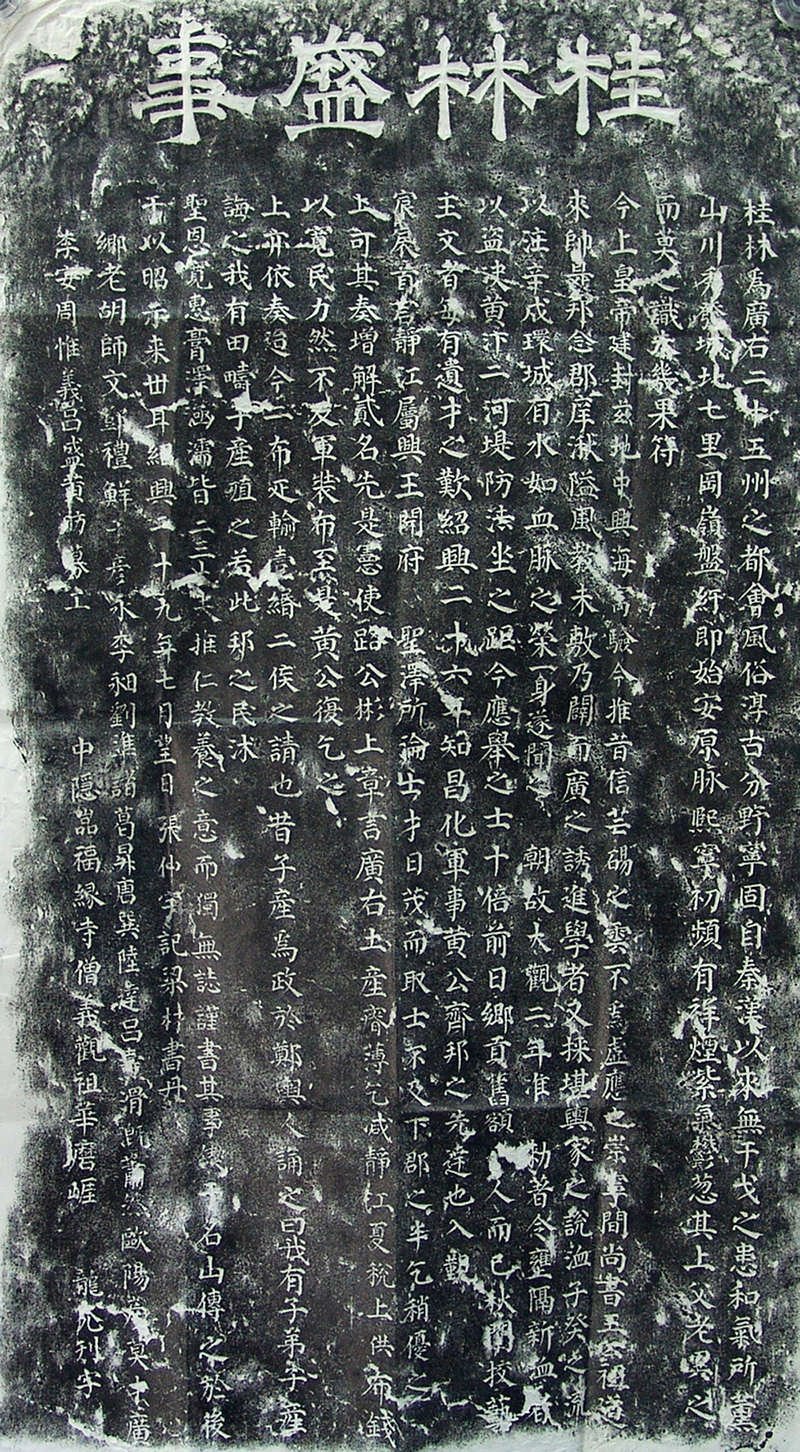 桂林盛事
桂林爲廣右二十五州之都會風俗淳古分野寧固自秦漢以來無干戈之患和氣所薰
山川秀城北七里岡嶺盤紆即始安原脉熙寧初頻有祥煙紫氣欎葱其上父老異之
而莫之識未幾果符
今上皇帝建封玆地中興海驗今推昔信芒碭之雲不爲虛應也崇寧間尚書王公祖道
來帥是邦念郡庠湫隘風敎未敷乃闢而廣之誘進學者又採堪輿家之說洫子癸之流
以注辛戌環城有水如血脉之榮一身遂聞之 朝故大觀二年准 勑著令壅隔新洫者
以盜決黃汴二河堤防法坐之距今應舉之士十倍前日鄉貢舊額 人而已秋闈技藝
主文者每有遺才之歎紹興二十六年知昌化軍事黃公齊邦之先達也入覲
宸扆首言靜江屬興王開府 聖澤所淪士才日茂而取士不及下郡之半乞稍優之
上可其奏增解貳名先是憲使路公彬上章言廣右土產瘠薄乞減靜江夏稅上供布錢
以寬民力然不及軍裝布至是黃公復乞之
上亦依奏迨今二布延輸壹緡二侯之請也昔子產爲政於鄭輿人誦之曰我有子弟子產
誨之我有田疇子產殖之若此邦之民沐
聖恩寬惠膏澤涵濡皆二三大推仁敎養之意而獨無誌謹書其事鑱于名山傳之於後
于以昭示来世耳紹興二十九年七月望日張仲宇記梁材書丹
鄉老胡師文鄧禮鮮于彥永李昶劉進諸葛昇唐巽陸逄呂滑凱蕭歐陽莫才廣
李安周惟義呂盛黃昉募工 中隱嵓福緣寺僧義觀祖華磨崕 龍光刋字